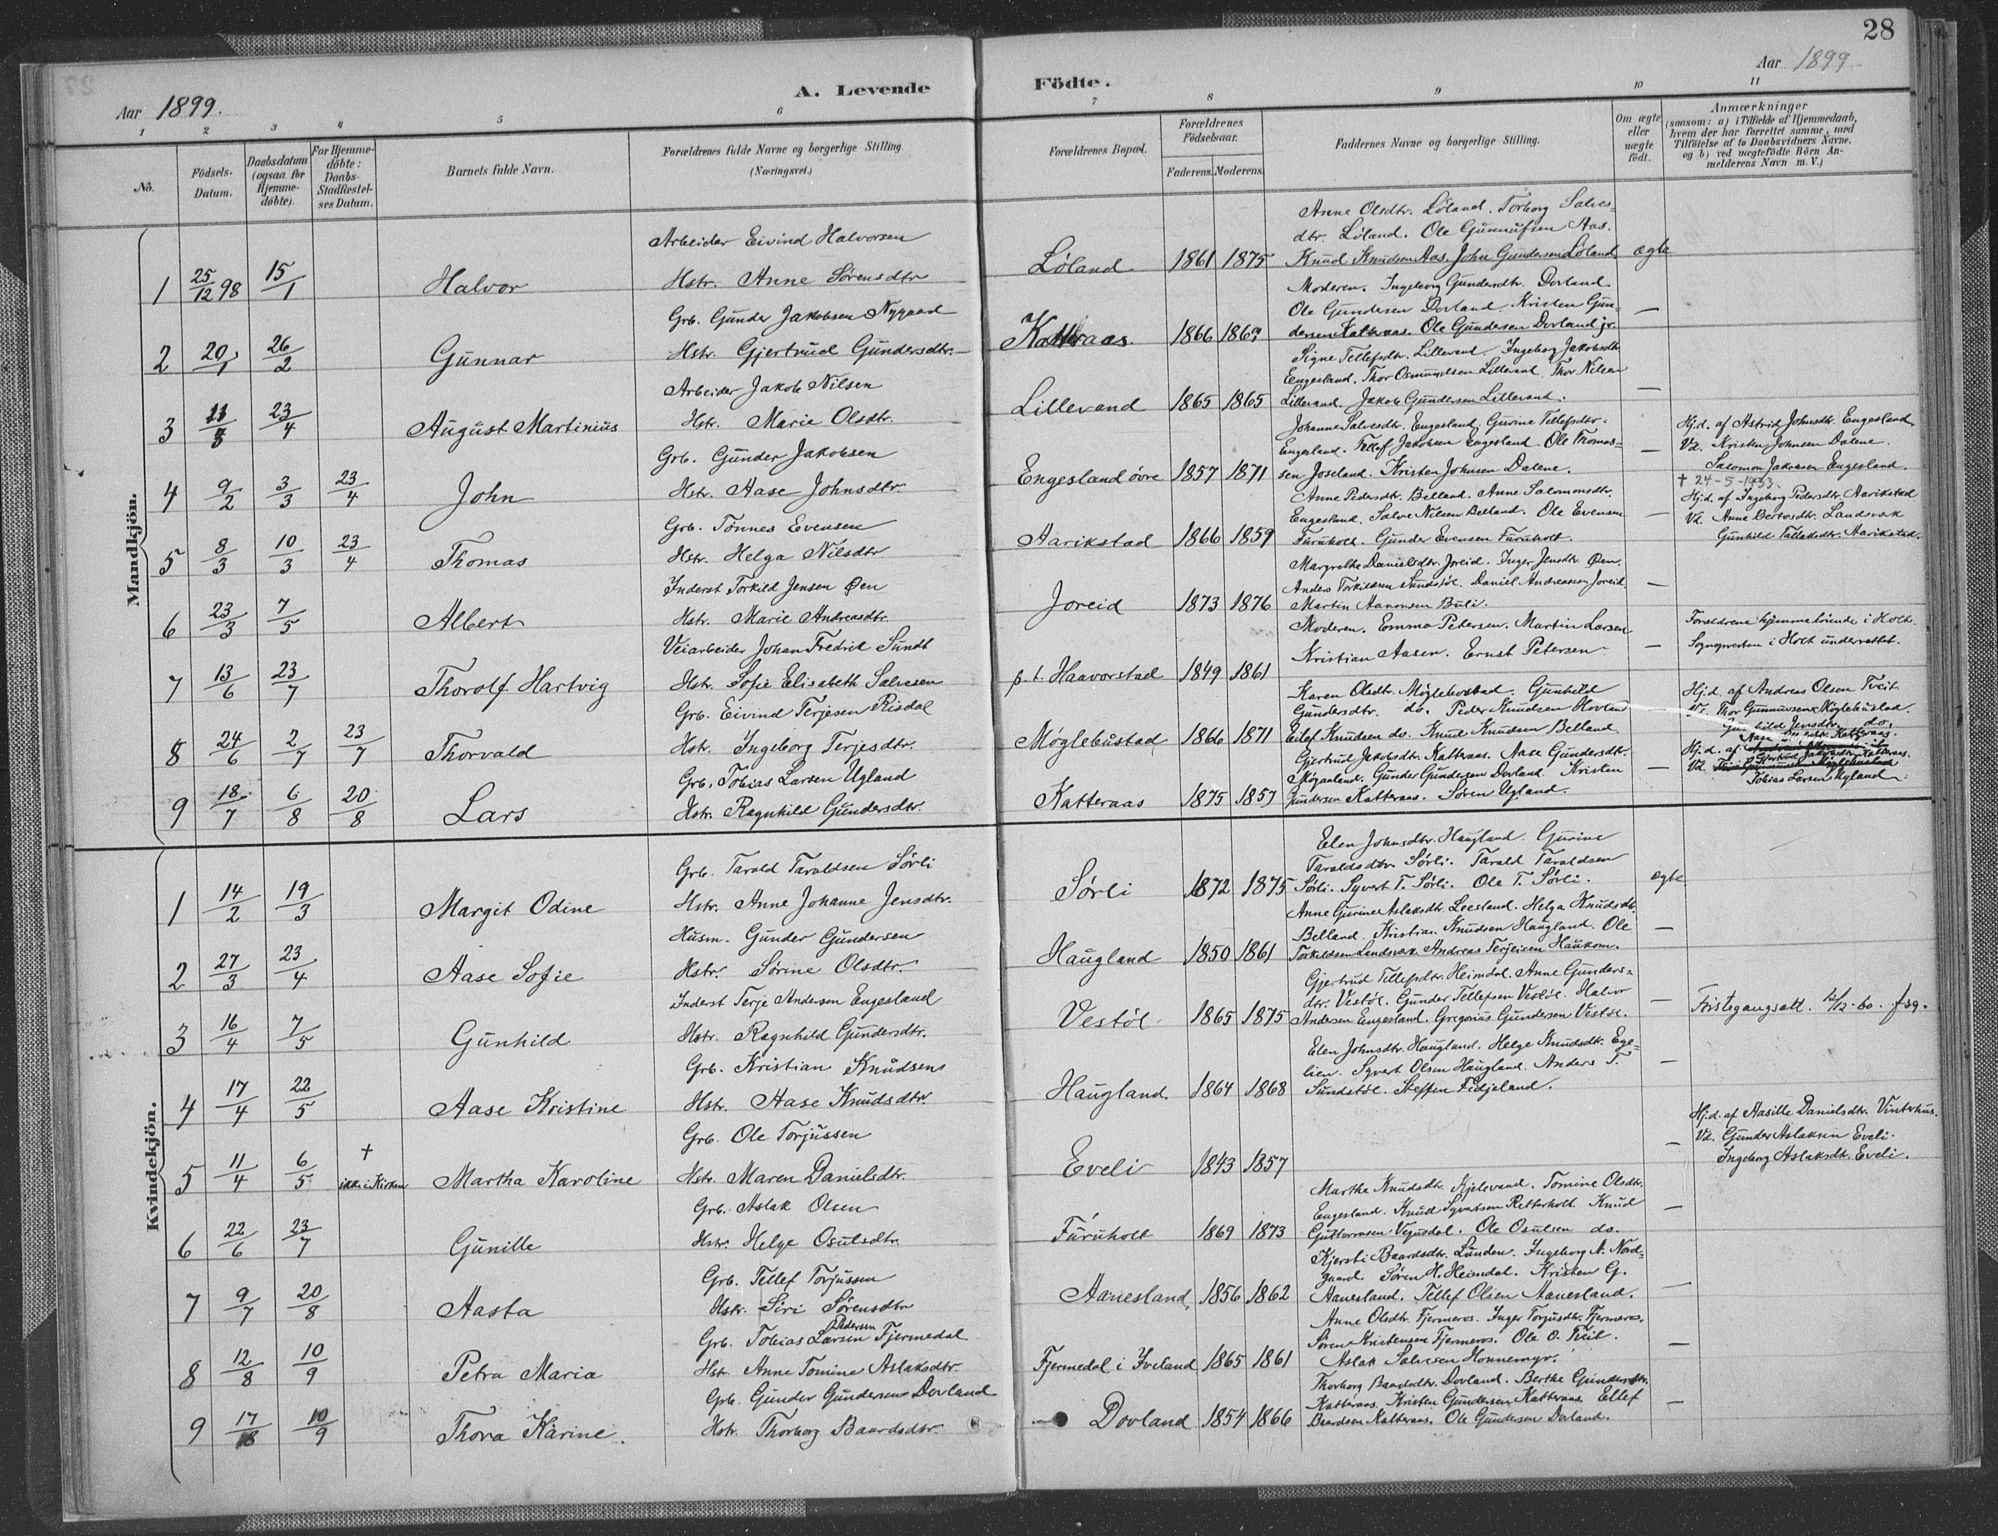 28
Aar 1899.
A. Levende Födte.
Aar 1899
1 2 3 4 5 6 7 8 9 10 11
No.
Födsels-Datum.
Daabsdatum (ogsaa for Hjemmedöbte).
For Hjemmedöbte: Daabs-Stadfæstelses Datum.
Barnets fulde Navn.
Forældrenes fulde Navne og borgerlige Stilling. (Næringsvei.)
Forældrenes Bopæl.
Forældrenes Födselsaar.
Faderens. Moderens.
Faddernes Navne og borgerlige Stilling.
Om ægte eller uægte födt.
Anmærkninger
(saasom: a) i Tilfælde af Hjemmedaab, hvem der har forrettet samme, med Tilföielse af to Daabsvidners Navne, og b) ved uægtefödte Börn Anmelderens Navn m. V.)
Mandkjön.
1 25/12 98 15/1 Halvor
Arbeider Eivind Halvorsen
Hstr. Anne Sørensdtr
Løland 1861 1875
Anne Olsdtr. Løland. Torborg Salves-
dtr. Løland. Ole Gunnufsen Aas.
Knud Knudsen Aas. John Gundersen Løland
ægte
2 20/1 26/2 Gunnar
Grb. Gunder Jakobsen Nygaard
Hstr. Gjertrud Gundersdtr.
Katteraas 1866 1869
Moderen. Ingeborg Gundersdtr. Dovland.
Ole Gundersen Dovland. Kristen Gun-
dersen Katteraas. Ole Gundersen Dovland jr.
—
3 23/4 August Martinius
Arbeider Jakob Nilsen
Hstr. Marie Olsdtr.
Lillevand 1865 1865
Signe Tellefsdtr. Lillevand. Ingeborg Jakobsdtr.
Engesland. Thor Osmundsen Lillevand. Thor Nilsen
Lillevand. Jakob Gundersen Lillevand.
—
4 9/2 3/3 23/4 John
Grb. Gunder Jakobsen
Hstr. Aase Johnsdtr.
Engesland övre 1857 1871
Johanne Salvesdtr. Engesland. Gurine Tellefsdtr.
Engesland. Tellef Jakobsen Engesland. Ole Thomas-
sen Joseland. Kristen Johnsen Dalene.
—
Hj.d. af Astrid Johnsdtr. Engesland
Vd. Kristen Johnsen Dalene.
Salomon Jakobsen Engesland.
5 8/3 10/3 23/4 Thomas
Grb. Tønnes Evensen
Hstr. Helga Nilsdtr
Aarikstad 1866 1859
Anne Pedersdtr. Belland. Anne Salomonsdtr.
Engesland. Salve Nilsen Belland. Ole Evensen
Furuholt. Gunder Evensen Furuholt.
—
† 24-5-1953.
Hj.d. af Ingeborg Pedersdtr. Aarikstad
Vd. Anne Bertosdtr. Landsvæk
Gunhild Tallaksdtr. Aarikstad.
6 23/3 7/5 Albert
Inderst Torkild Jensen Øen
Hstr. Marie Andreasdtr.
Joreid 1873 1876
Margrethe Danielsdtr. Joreid. Inger Jensdtr. Øen.
Anders Torkildsen Sundstöl. Daniel Andreassen Joreid.
Martin Aanonsen Buli.
—
7 13/6 23/7 Thorolf Hartvig
Veiarbeider Johan Fredrik Sundt
Hstr. Sofie Elisabeth Salvesen
p. t. Haavorstad 1849 1861
Moderen. Emma Petersen. Martin Larsen
Kristian Aasen. Ernst Petersen
—
Forældrene hjemmehørende i Holt.
Sognepresten i Holt underrettet.
8 24/6 2/7 23/7 Thorvald
Grb. Eivind Terjesen Risdal
Hstr. Ingeborg Terjesdtr.
Møglebustad 1866 1871
Karen Olsdtr. Møglebustad. Gunhild
Gundersdtr. do. Peder Knudsen Hovland
Eilef Knudsen do. Knud Knudsen Belland.
—
Hj.d. af Andreas Olsen Tveit
Vd. Thor Gunnuvsen Møglebustad.
Gunhild Jensdtr. do.
9 18/7 6/8 20/8 Lars
Grb. Tobias Larsen Ugland
Hstr. Ragnhild Gundersdtr.
Katteraas 1875 1857
Gjertrud Jakobsdtr. Katteraas. Aase Gundersdtr.
Mögaaland. Gunder Gundersen Dovland. Kristen
Gundersen Katteraas. Søren Ugland.
—
Hj.d. af
Gjertrud Jakobsdtr. Katteraas.
Vd. Tobias Larsen Ugland
Kvindekjön.
1 14/2 19/3 Margit Odine
Grb. Tarald Taraldsen Sørli
Hstr. Anne Johanne Jensdtr.
Sørli 1872 1875
Elen Johnsdtr. Haugland. Gurine
Taraldsdtr. Sørli. Tarald Taraldsen
Sørli. Syvert T. Sørli. Ole T. Sørli.
ægte
2 27/3 23/4 Aase Sofie
Husm. Gunder Gundersen
Hstr. Sørine Olsdtr.
Haugland 1850 1861
Anne Gurine Aslaksdtr. Leesland. Helga Knudsdtr.
Belland. Kristian Knudsen Haugland. Ole
Torkildsen Landsvæk. Andreas Terjesen Haukom.
—
3 16/4 7/5 Gunhild
Inderst Terje Andersen Engesland
Hstr. Ragnhild Gundersdtr.
Vestöl 1865 1875
Gjertrud Tellefsdtr. Heimdal. Anne Gunders-
dtr. Vestöl. Gunder Tellefsen Vestöl. Halvor
Andersen Engesland. Gregorius Gundersen Vestöl.
—
Förstegangsatt. 2/12-60. fsg.
4 17/4 22/5 Aase Kristine
Grb. Kristian Knudsen
Hstr. Aase Knudsdtr.
Haugland. 1864 1868
Elen Johnsdtr. Haugland. Helge Knudsdtr. Ege-
lien. Syvert Olsen Haugland. Anders T.
Sundstöl. Steffen Fidjeland.
—
5 11/4 6/5 † ikke i Kirken Martha Karoline
Grb. Ole Torjussen
Hstr. Maren Danielsdtr.
Eveli 1843 1857
—
Hj.d. af Aasille Danielsdtr. Vinterhus.
Vd. Gunder Aslaksen Eveli.
Ingeborg Aslaksdtr. Eveli.
6 22/6 23/7 Gunille
Grb. Aslak Olsen
Hstr. Helge Osulsdtr.
Furuholt 1869 1873
Marthe Knudsdtr. Kjelevand. Tomine Olsdtr.
Engesland. Knud Syvertsen Retterholt. Knud
Guttormsen Vegusdal. Ole Osulsen do.
—
7 9/7 20/8 Aasta
Grb. Tellef Torjussen
Hstr. Siri Sørensdtr
Aanesland, 1856 1862
Kjersti Baardsdtr. Lunden. Ingeborg A. Nord-
gaard. Søren H. Heimdal. Kristen G.
Aanesland. Tellef Olsen Aanesland.
—
8 12/8 10/9 Petra Maria
Grb. Tobias Larsen Pedersen Fjermedal
Hstr. Anne Tomine Aslaksdtr.
Fjermedal i Iveland 1865 1861
Anne Olsdtr. Fjermeros. Inger Torjusdtr. Fjermeros.
Søren Kristensen Fjermeros. Ole O. Tveit.
Aslak Salvesen Honnemyr.
—
9 17/8 10/9 Thora Karine.
Grb. Gunder Gundersen Dovland
Hstr. Thorborg Baardsdtr.
Dovland 1854 1866
Thorborg Baardsdtr. Dovland. Berthe Gundersdtr.
Katteraas. Kristen Gundersen Katteraas. Ellef
Baardsen Katteraas. Ole Gundersen Dovland.
—